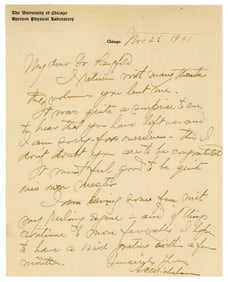 The University of Chicago
Ryerson Physical Laboratory
Chicago Nov 26 1911
My dear Dr
I return with many thanks
the volume you lent me.
It was quite a surprise to me
to hear that you have left us and
I am sorry for ourselves - tho I
don't doubt you are to be congratulated
It must feel good to be quite
ones own master
I am having some fun with
my ruling engine - and if things
continue to move favorably I hope
to have a grating within a few
months.
Sincerely Yours
A A Michelson